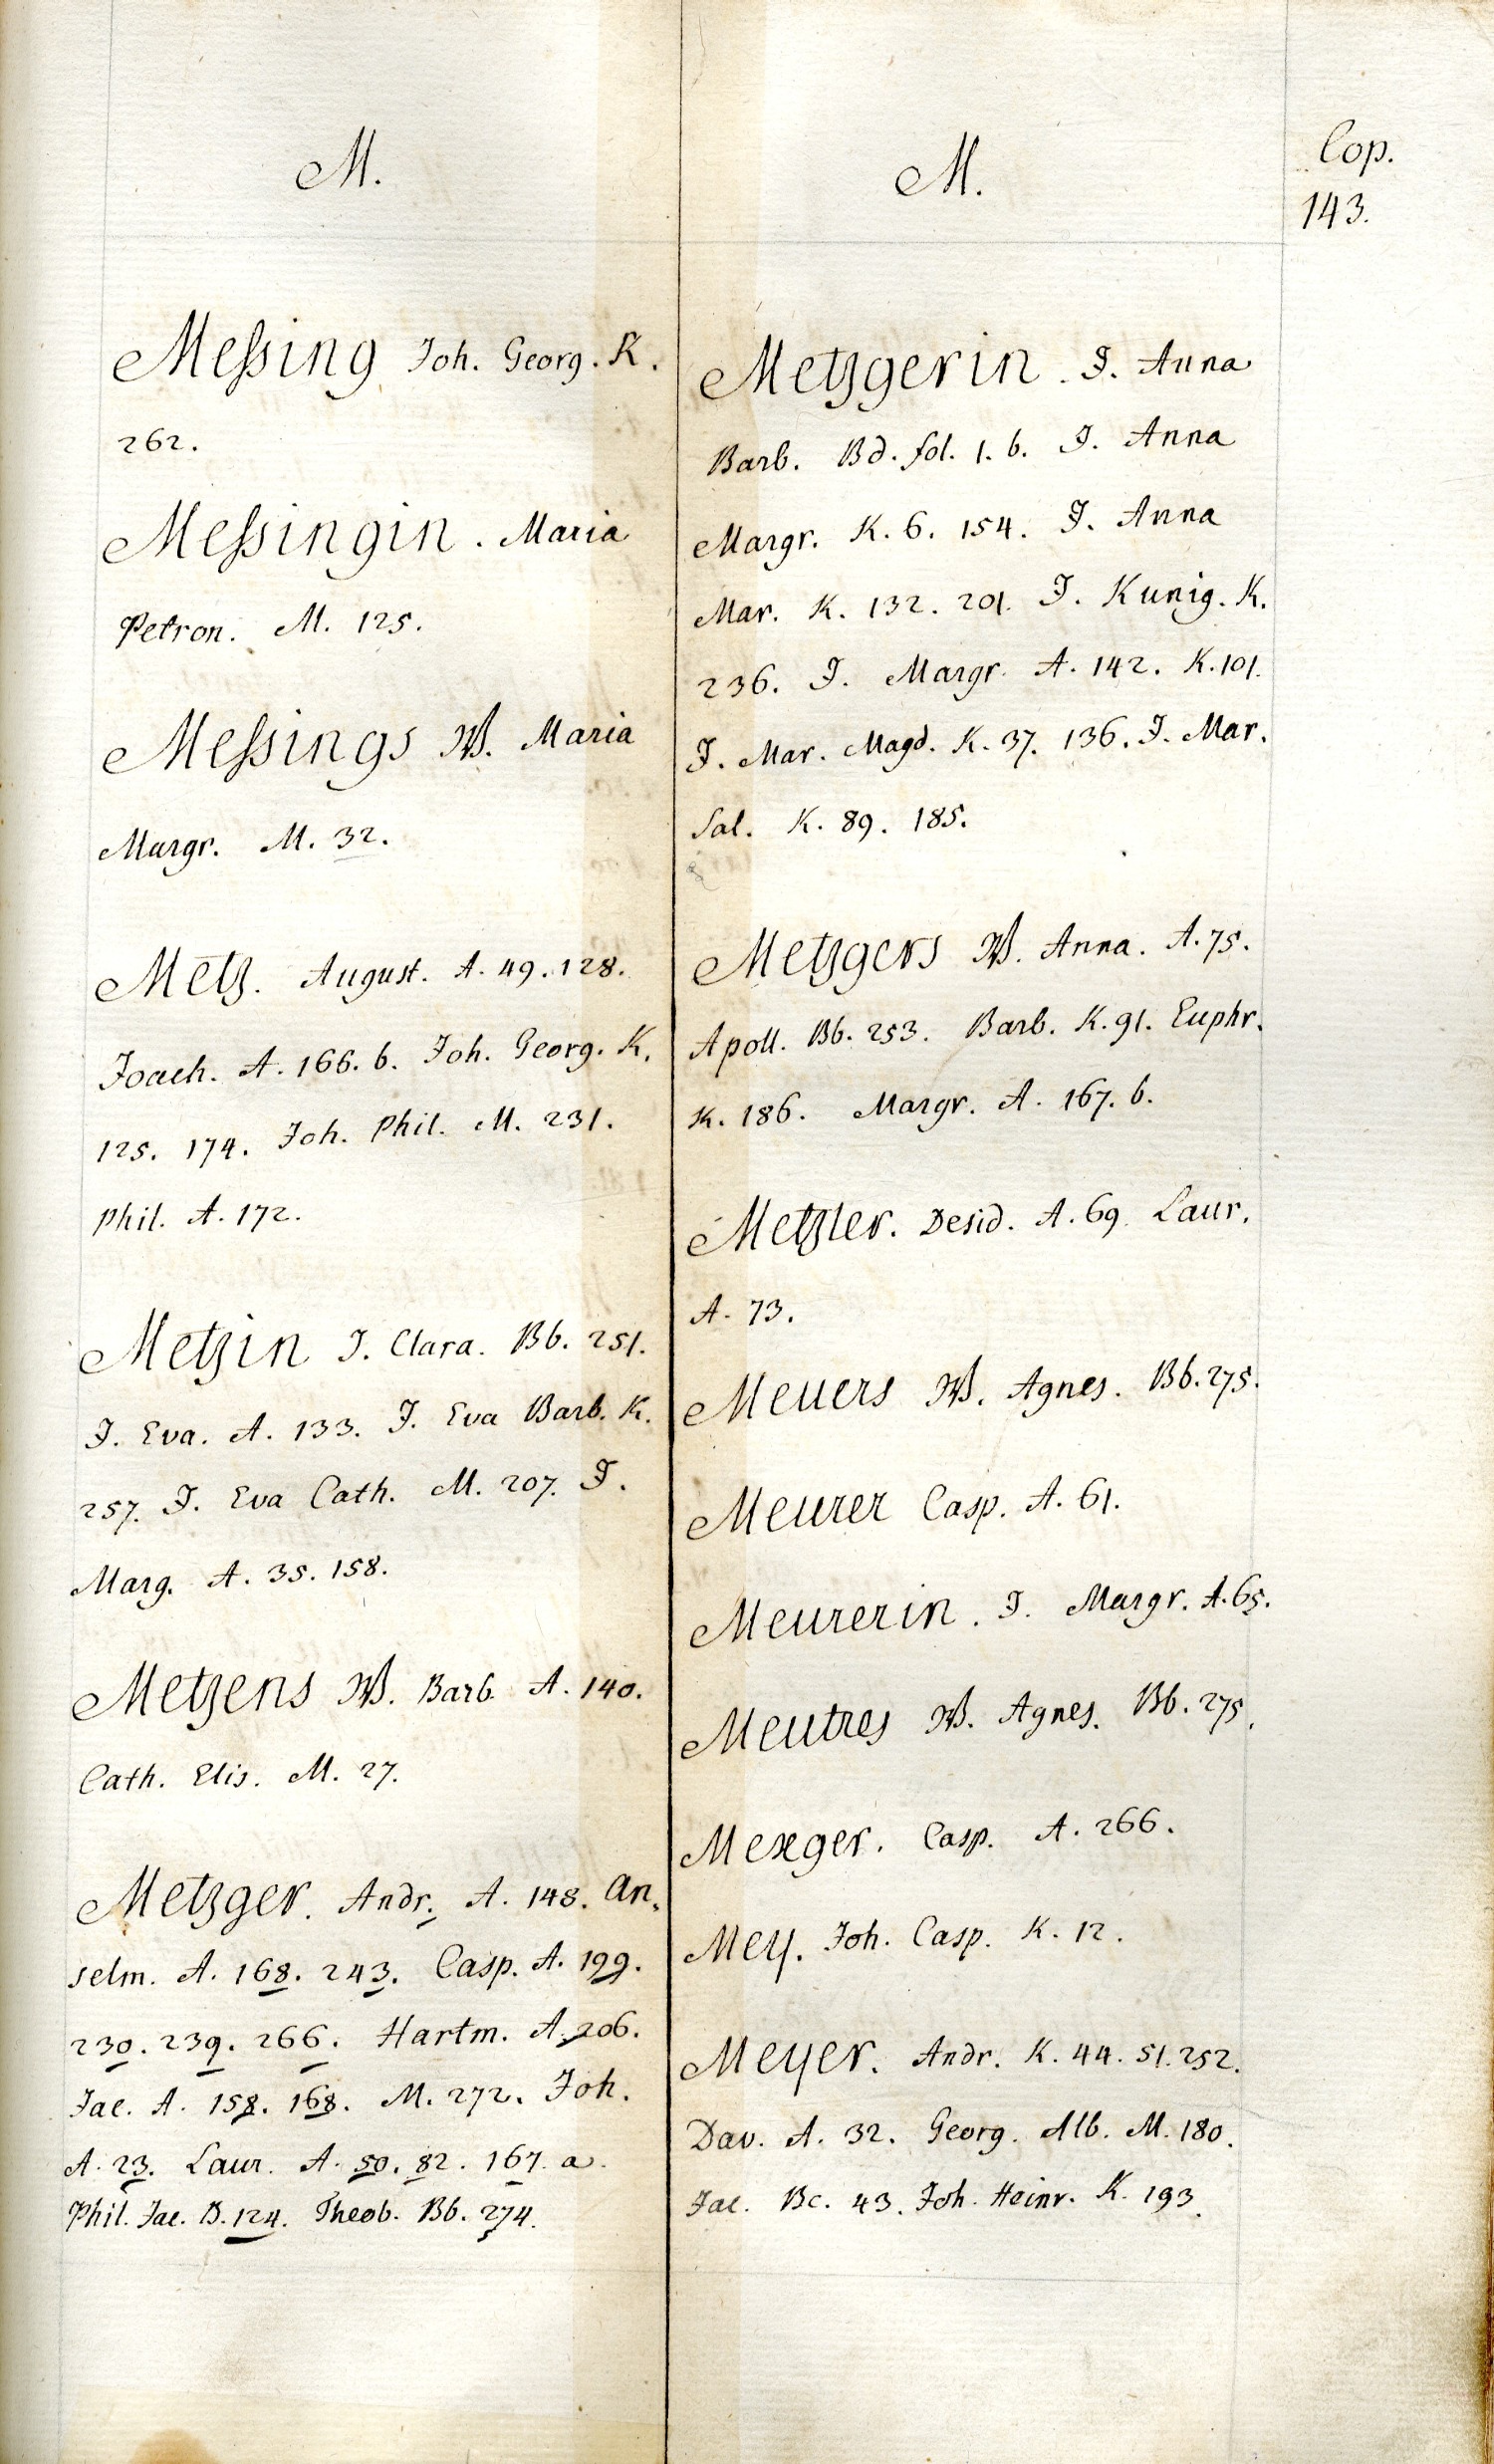 M.
Meſsing Joh. Georg. K.
262.
Meſsingin. Maria
Petron. M. 125.
Meſsings W. Maria
Margr. M. 32.
Metz. August. A. 49. 128.
Joach. A. 166. b. Joh. Georg. K.
125. 174. Joh. Phil. M. 231.
Phil. A. 172.
Metzin J. Clara. Bb. 251.
J. Eva. A. 133. J. Eva Barb. K.
257. J. Eva Cath. M. 207. J.
Marg. A. 35. 158.
Metzens W. Barb. A. 140.
Cath. Elis. M. 27.
Metzger. Andr. A. 148. An,
selm. A. 168. 243. Casp. A. 199.
230. 239. 266. Hartm. A. 206.
Jac. A. 158. 168. M. 272. Joh.
A. 23. Laur. A. 50. 82. 167. a.
Phil. Jac. B. 124. Theob. Bb. 274.
M.
Metzgerin. J. Anna
Barb. Bd. fol. 1. b. J. Anna
Margr. K. 6. 154. J. Anna
Mar. K. 132. 201. J. Kunig. K.
236. J. Margr. A. 142. K. 101.
J. Mar. Magd. K. 37. 136. J. Mar.
Sal. K. 89. 185.
Metzgers W. Anna. A. 75.
Apoll. Bb. 253. Barb. K. 91. Euphr.
K. 186. Margr. A. 167. b.
Metzler. Desid. A. 69. Laur.
A. 73.
Meuers W. Agnes. Bb. 275.
Meurer Casp. A. 61.
Meurerin. J. Margr. A. 65.
Meutres W. Agnes. Bb. 275.
Mexger. Casp. A. 266.
Mey. Joh. Casp. K. 12.
Meyer. Andr. K. 44. 51. 252.
Dav. A. 32. Georg. Alb. M. 180.
Jac. Bc. 43. Joh. Heinr. K. 193.
Cop.
143.